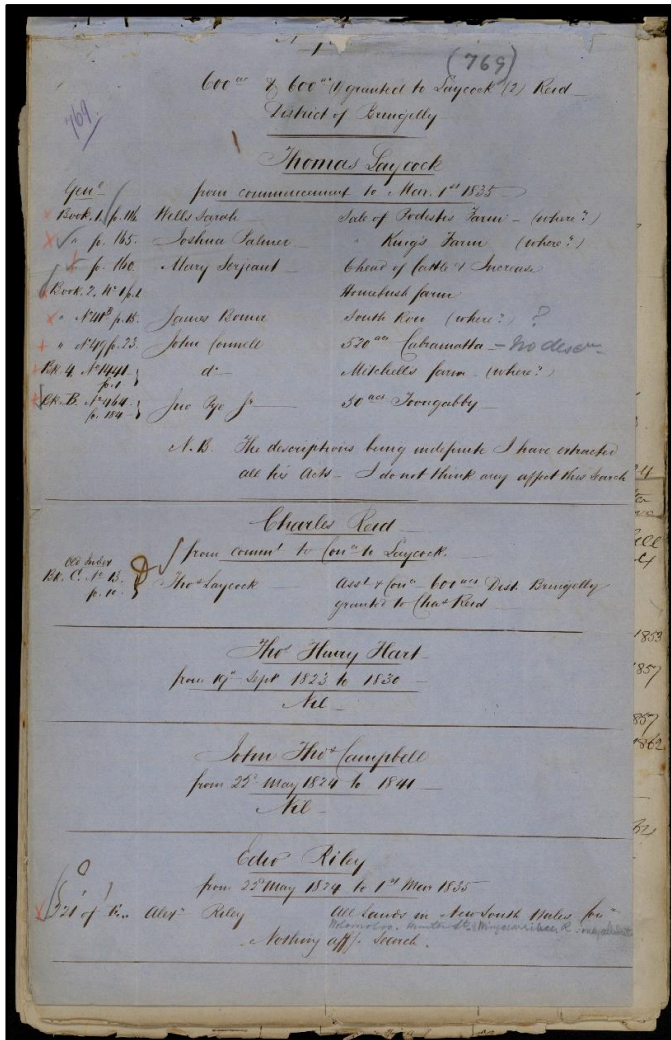 (769)
769
600 acs & 600 acs (1) granted to Laycock (2) Reid
District of Bringelly
Thomas Laycock
from commencement to Mar. 1st 1835
Genl
Book. 1. p. 116 Wells Sarah Sale of Farm (where?)
" p. 165. Joshua Palmer " King's Farm (where?)
" p. 160. Mary Serjeant 6 head of Cattle & Increase
Book. 2. No 1 p. 1 Homebush farm
" p. 15. James South Row (where?) ?
" No 49 p. 23. John Connell 520 acs Cabramatta - No descr
Bk. 4 No 1441 p. 1 do Mitchell's farm (where?)
Bk. B. No 464 p. 184 Jno Pye Jr 50 acs Toongabby
N.B. The descriptions being indefinite I have extracted
all his Acts - I do not think any affect this Search
Charles Reid
from commt to Conce to Laycock
Old Index
Bk. C. No 13. p. 10. Thos Laycock Asst & Conce 600 acs Dist. Bringelly
granted to Chas Reid
Thos Henry Hart
from 19th Sept 1823 to 1830
Nil
John Thos Campbell
from 25th May 1824 to 1841
Nil
Edwd Riley
from 22d May 1824 to 1st Mar 1835
221 of Alexr Riley All Lands in New South Wales
Nothing affg Search.
1853
1857
1857
1862